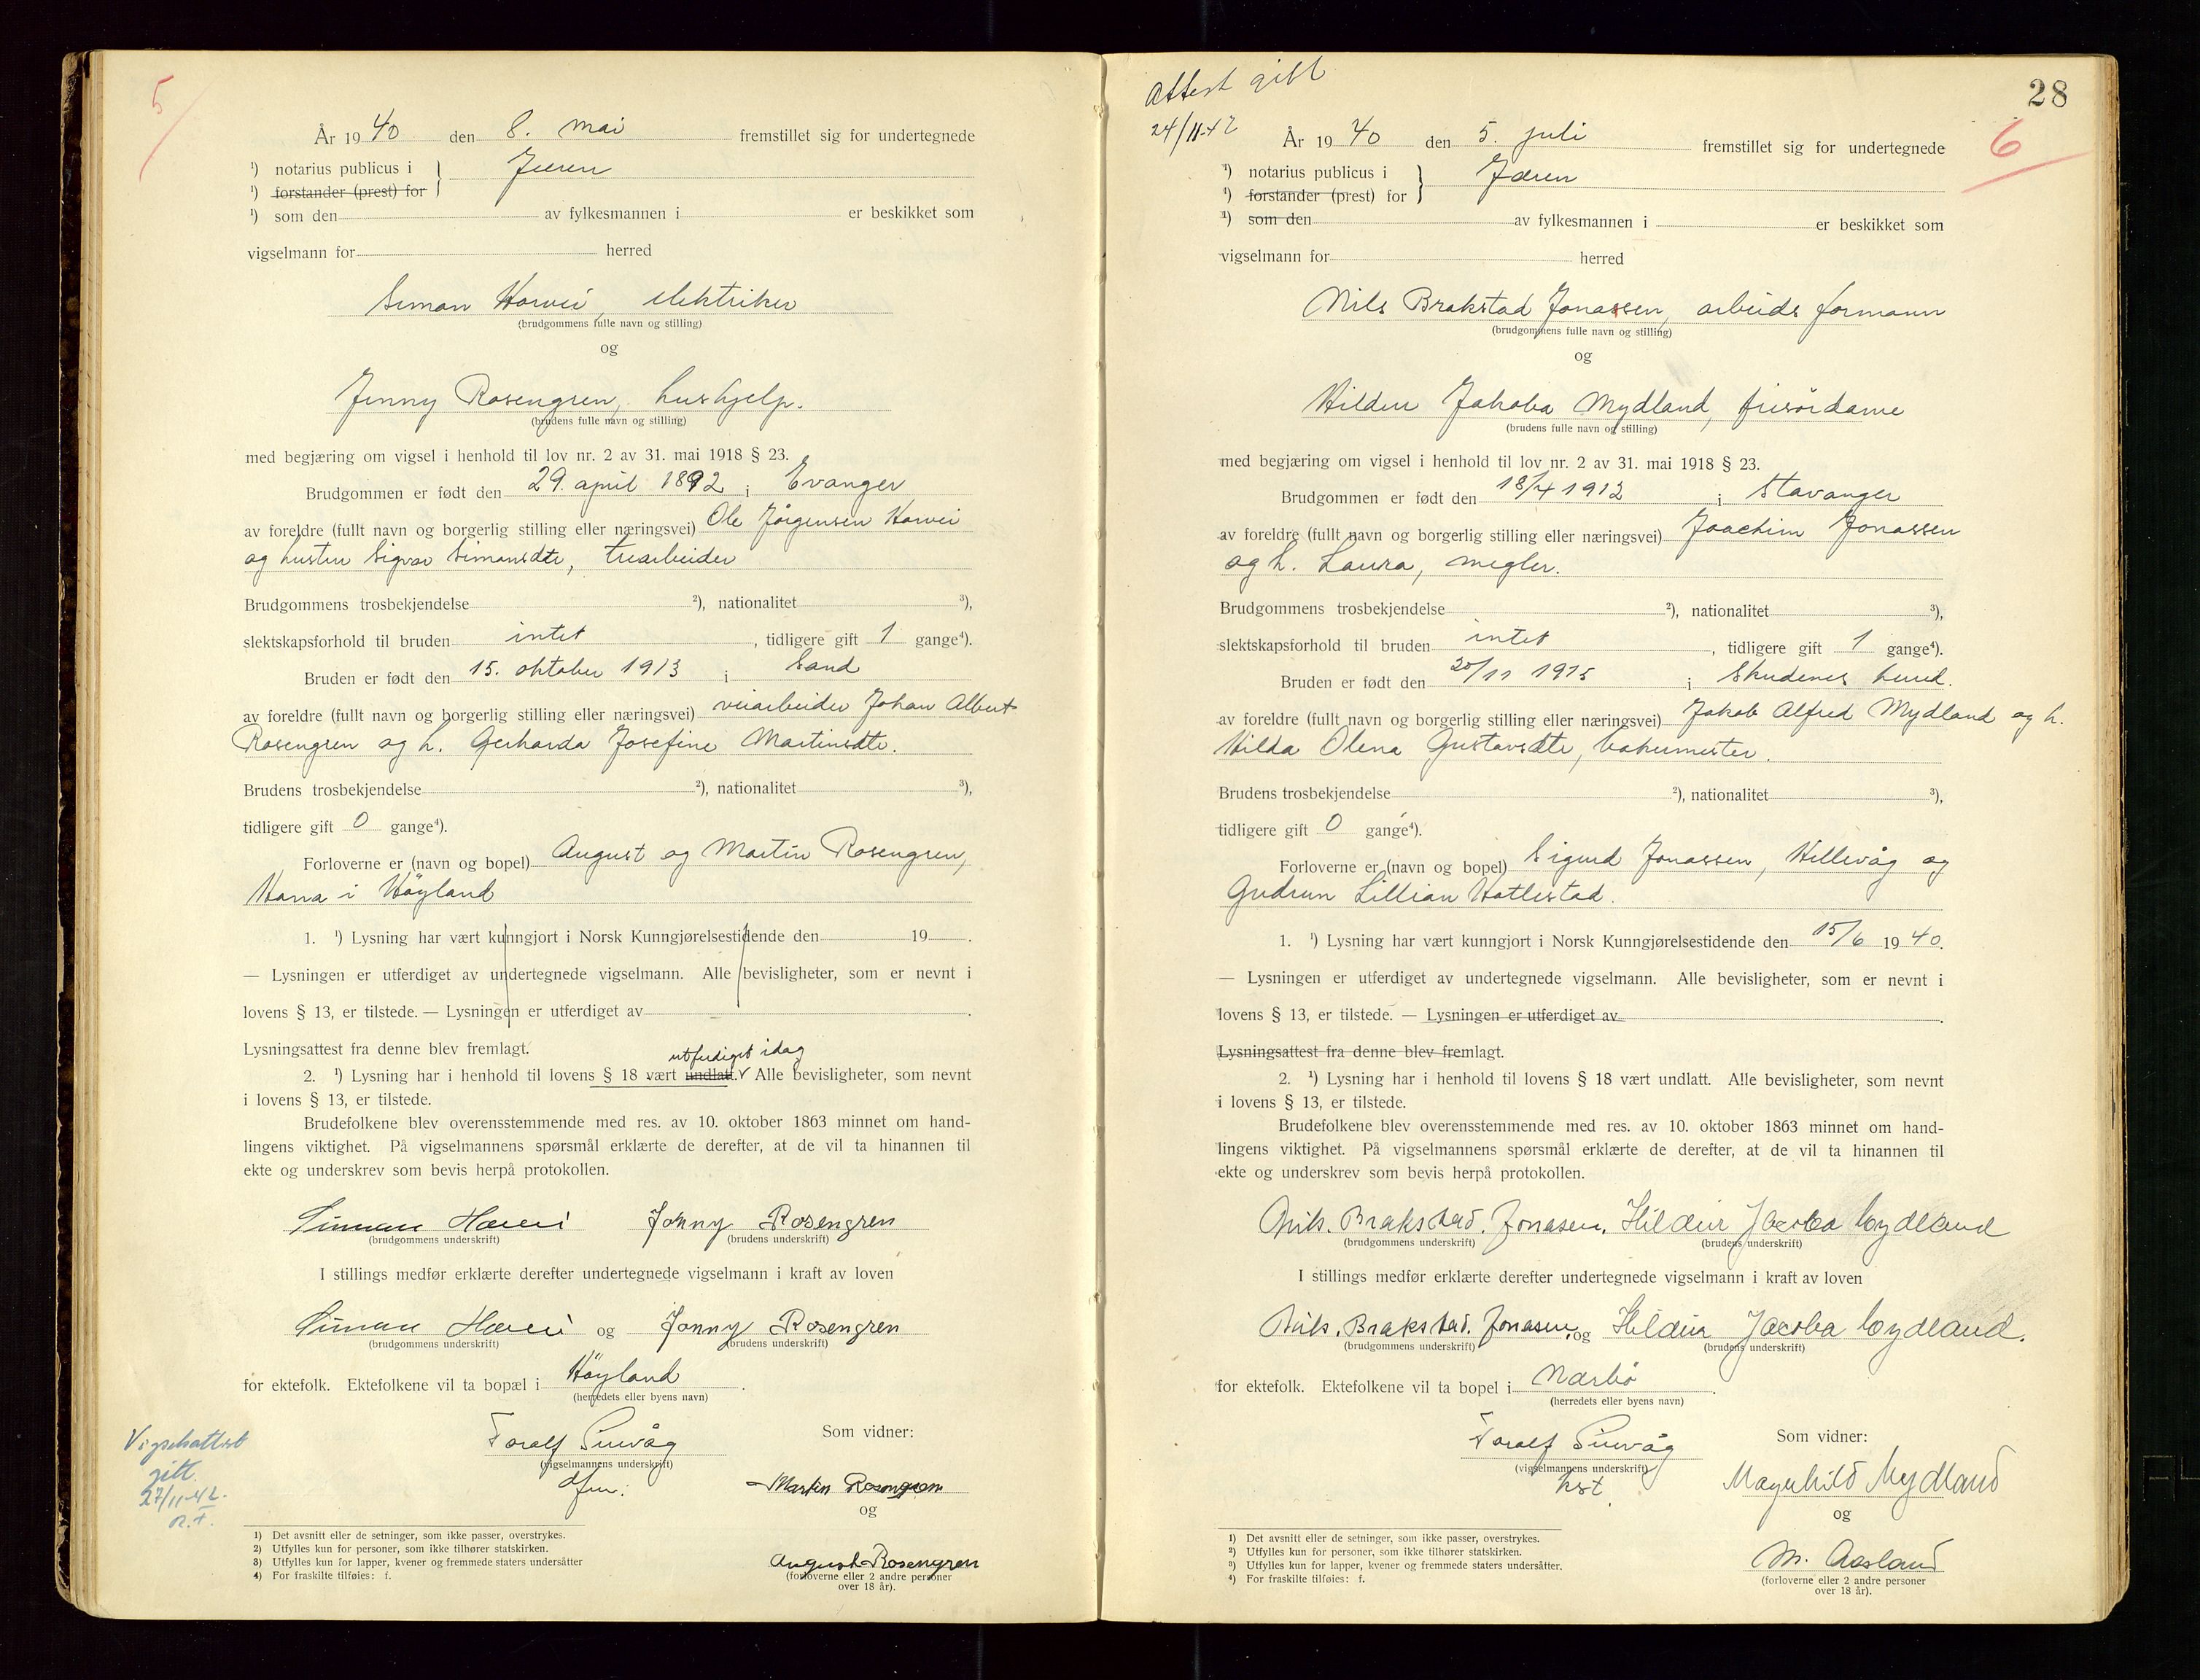 5
År 1940 den 8. mai fremstillet sig for undertegnede
¹) notarius publicus i } Jæren
¹) forstander (prest) for
¹) som den av fylkesmannen i er beskikket som
vigselmann for herred
Simon Horvei, elektriker
(brudgommens fulle navn og stilling)
og
Jenny Rosengren, hushjelp.
(brudens fulle navn og stilling)
med begjæring om vigsel i henhold til lov nr. 2 av 31. mai 1918 § 23.
Brudgommen er født den 29. april 1892 i Evanger
av foreldre (fullt navn og borgerlig stilling eller næringsvei) Ole Jørgensen Horvei
og hustru Sigva Simonsdtr, trearbeider
Brudgommens trosbekjendelse ²), nationalitet ³),
slektskapsforhold til bruden intet , tidligere gift 1 gange⁴).
Bruden er født den 15. oktober 1913 i Sand
av foreldre (fullt navn og borgerlig stilling eller næringsvei) veiarbeider Johan Albert
Rosengren og h. Gerharda Josefine Martinsdtr.
Brudens trosbekjendelse ²), nationalitet ³),
tidligere gift 0 gange⁴).
Forloverne er (navn og bopel) August og Martin Rosengren,
Hana i Høyland
1. ¹) Lysning har vært kunngjort i Norsk Kunngjørelsestidende den 19 .
— Lysningen er utferdiget av undertegnede vigselmann. Alle bevisligheter, som er nevnt i
lovens § 13, er tilstede. — Lysningen er utferdiget av .
Lysningsattest fra denne blev fremlagt.
utferdiget idag
2. ¹) Lysning har i henhold til lovens § 18 vært undlatt. Alle bevisligheter, som nevnt
i lovens § 13, er tilstede.
Brudefolkene blev overensstemmende med res. av 10. oktober 1863 minnet om hand-
lingens viktighet. På vigselmannens spørsmål erklærte de derefter, at de vil ta hinannen til
ekte og underskrev som bevis herpå protokollen.
Simon Horvei Jenny Rosengren
(brudgommens underskrift) (brudens underskrift)
I stillings medfør erklærte derefter undertegnede vigselmann i kraft av loven
Simon Horvei og Jenny Rosengren
(brudgommens underskrift) (brudens underskrift)
for ektefolk. Ektefolkene vil ta bopæl i Høyland .
(herredets eller byens navn)
Toralf Sirevåg
(vigselmannens underskrift)
dfm.
Som vidner:
Martin Rosengren
og
August Rosengren
(forloverne eller 2 andre personer
over 18 år).
Vigselsattest
gitt.
27/11-42.
¹) Det avsnitt eller de setninger, som ikke passer, overstrykes.
²) Utfylles kun for personer, som ikke tilhører statskirken.
³) Utfylles kun for lapper, kvener og fremmede staters undersåtter
⁴) For fraskilte tilføies: f.
Attest gitt
24/11-42
28
6
År 1940 den 5. juli fremstillet sig for undertegnede
¹) notarius publicus i } Jæren
¹) forstander (prest) for
¹) som den av fylkesmannen i er beskikket som
vigselmann for herred
Nils Brakstad Jonassen, arbeidsformann
(brudgommens fulle navn og stilling)
og
Hildur Jakoba Mydland, frisørdame
(brudens fulle navn og stilling)
med begjæring om vigsel i henhold til lov nr. 2 av 31. mai 1918 § 23.
Brudgommen er født den 18/4 1912 i Stavanger
av foreldre (fullt navn og borgerlig stilling eller næringsvei) Joachim Jonassen
og h. Laura, megler.
Brudgommens trosbekjendelse ²), nationalitet ³),
slektskapsforhold til bruden intet , tidligere gift 1 gange⁴).
Bruden er født den 20/11 1915 i Skudenes herred.
av foreldre (fullt navn og borgerlig stilling eller næringsvei) Jakob Alfred Mydland og h.
Hilda Olena Gustavsdtr, bakermester.
Brudens trosbekjendelse ²), nationalitet ³),
tidligere gift 0 gange⁴).
Forloverne er (navn og bopel) Sigurd Jonassen, Hillevåg og
Gudrun Lillian Hatlestad.
1. ¹) Lysning har vært kunngjort i Norsk Kunngjørelsestidende den 15/6 1940.
— Lysningen er utferdiget av undertegnede vigselmann. Alle bevisligheter, som er nevnt i
lovens § 13, er tilstede. — Lysningen er utferdiget av .
Lysningsattest fra denne blev fremlagt.
2. ¹) Lysning har i henhold til lovens § 18 vært undlatt. Alle bevisligheter, som nevnt
i lovens § 13, er tilstede.
Brudefolkene blev overensstemmende med res. av 10. oktober 1863 minnet om hand-
lingens viktighet. På vigselmannens spørsmål erklærte de derefter, at de vil ta hinannen til
ekte og underskrev som bevis herpå protokollen.
Nils. Brakstad. Jonasen. Hildur Jacoba Mydland
(brudgommens underskrift) (brudens underskrift)
I stillings medfør erklærte derefter undertegnede vigselmann i kraft av loven
Nils. Brakstad. Jonasen. og Hildur Jacoba Mydland.
(brudgommens underskrift) (brudens underskrift)
for ektefolk. Ektefolkene vil ta bopel i Nærbø .
(herredets eller byens navn)
Toralf Sirevåg
(vigselmannens underskrift)
kst.
Som vidner:
Magnhild Mydland
og
M. Aasland
(forloverne eller 2 andre personer
over 18 år).
¹) Det avsnitt eller de setninger, som ikke passer, overstrykes.
²) Utfylles kun for personer, som ikke tilhører statskirken.
³) Utfylles kun for lapper, kvener og fremmede staters undersåtter.
⁴) For fraskilte tilføies: f.